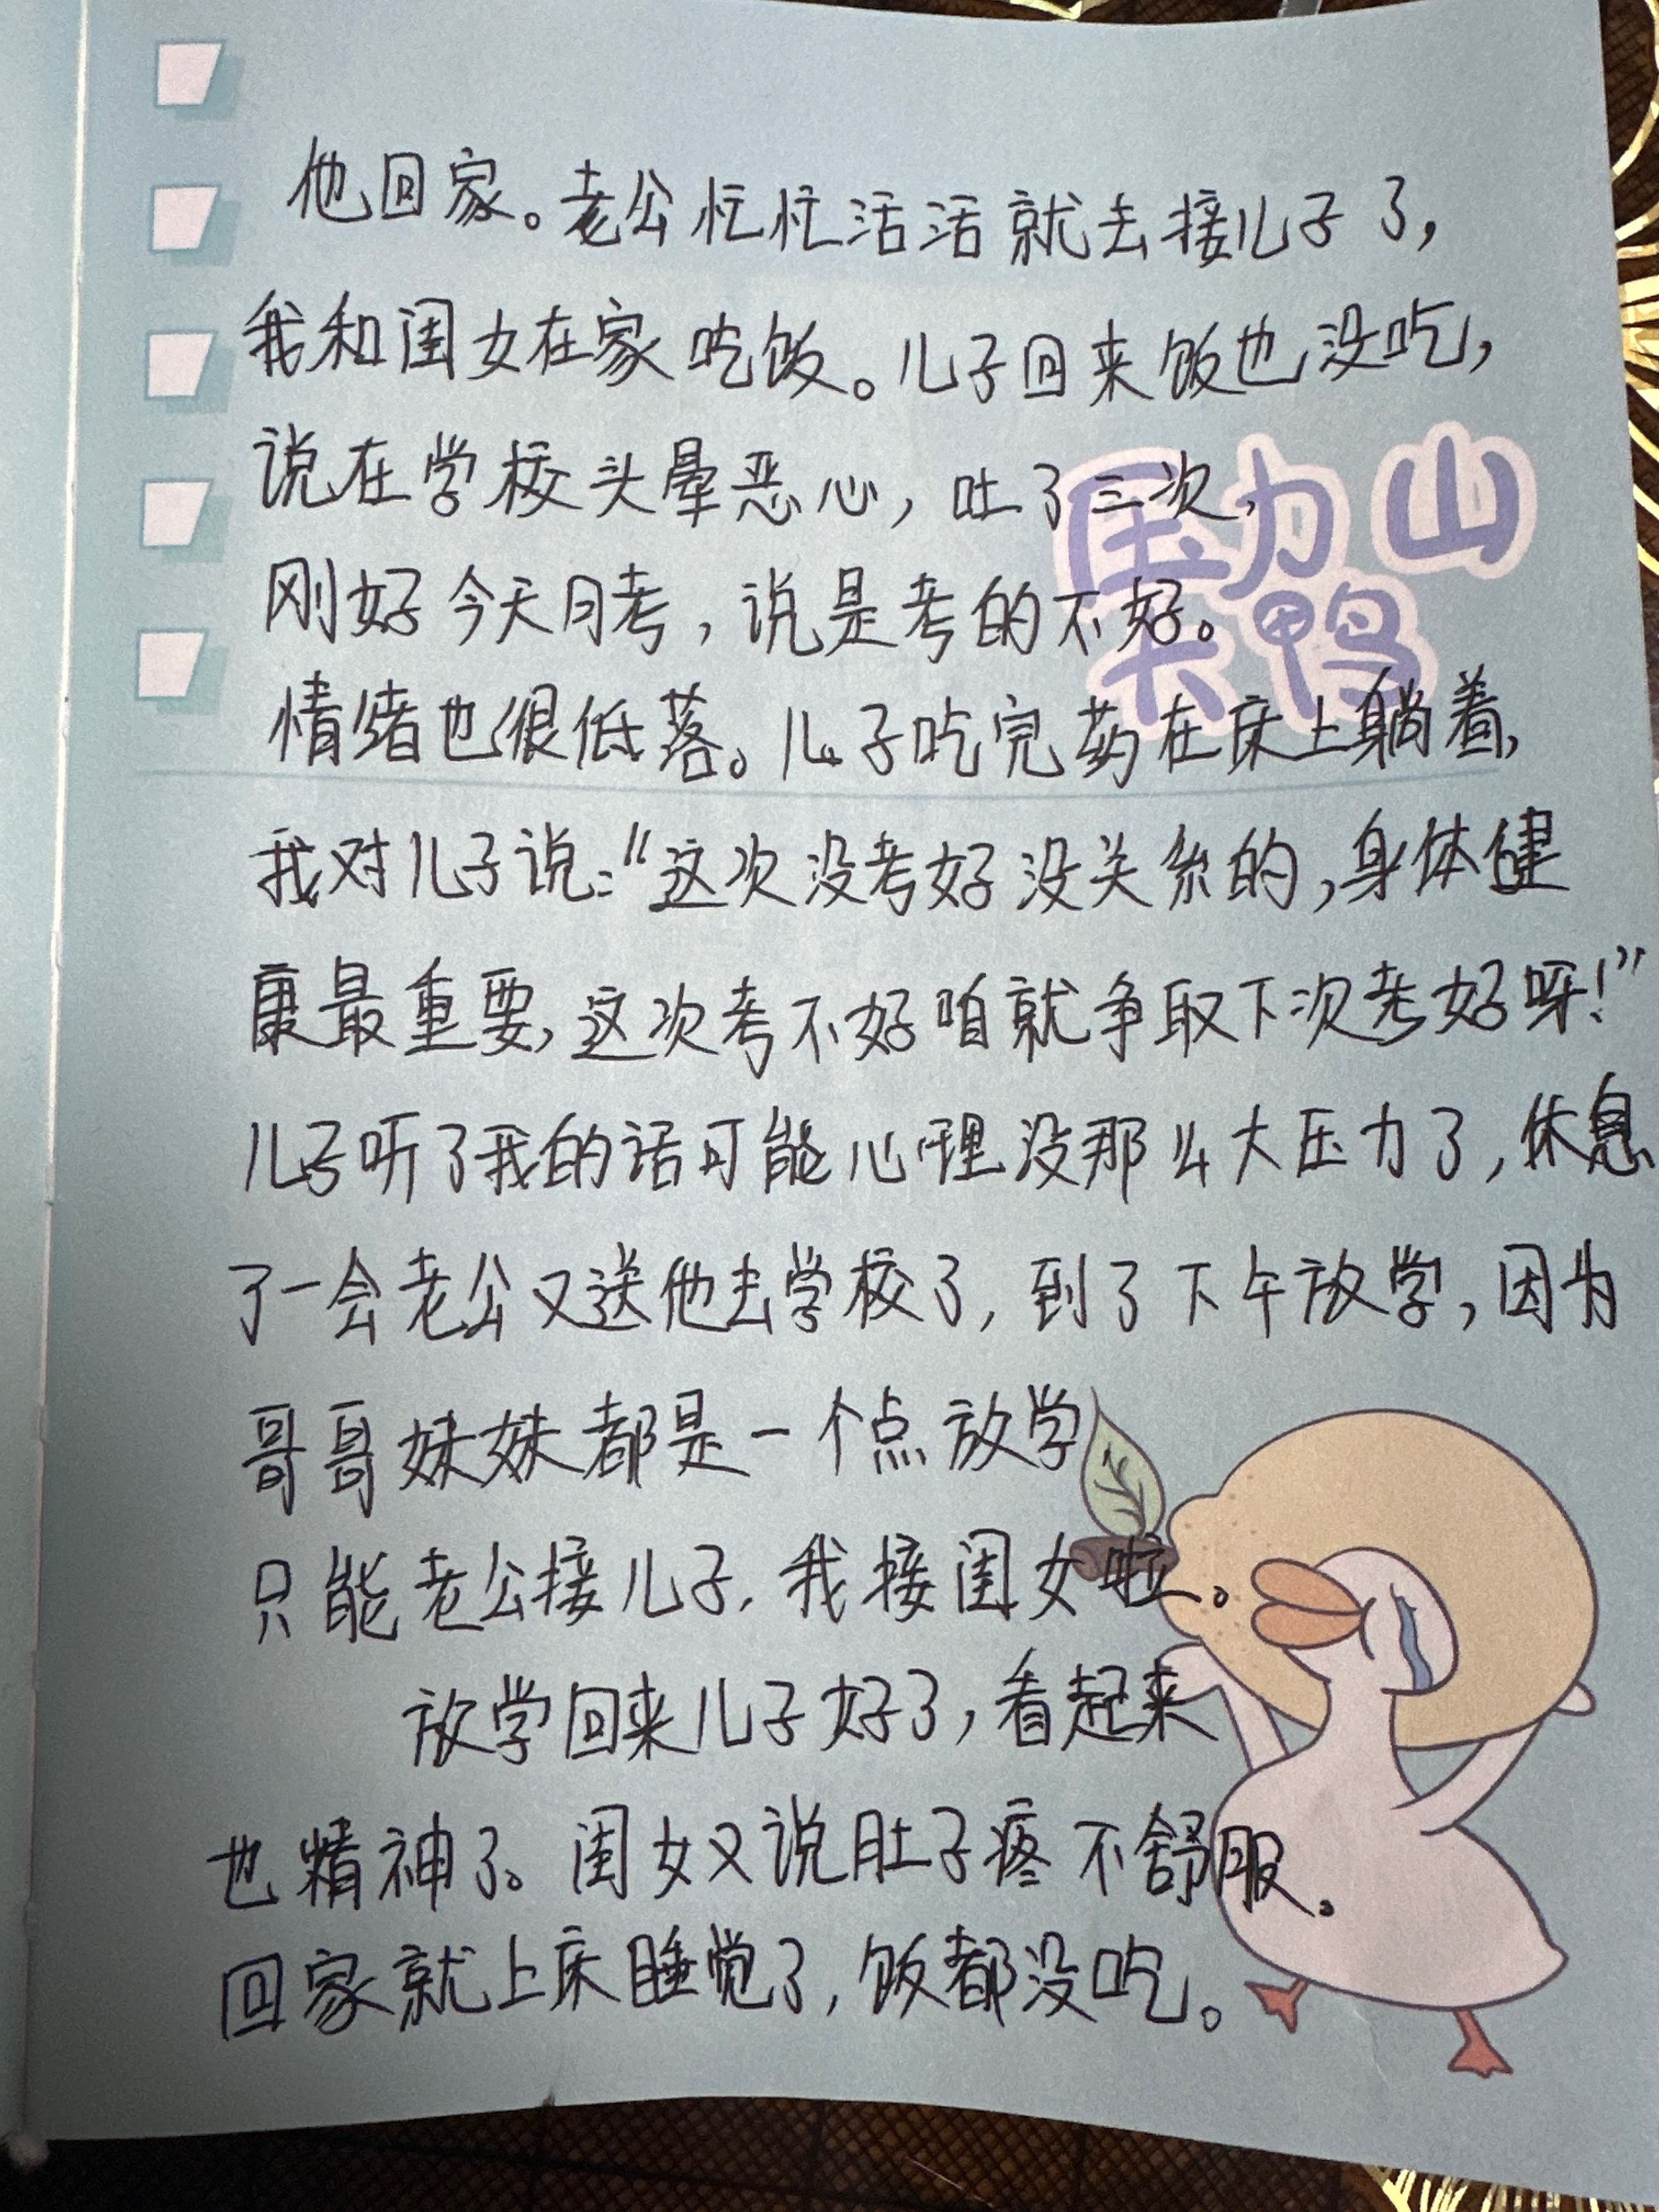 他回家。老公忙忙活活就去接儿子了，
我和闺女在家吃饭。儿子回来饭也没吃，
说在学校头晕恶心，吐了三次，
压力山
刚好今天月考，说是考的不好。
大鸭
情绪也很低落。儿子吃完药在床上躺着，
我对儿子说：“这次没考好没关系的，身体健
康最重要，这次考不好咱就争取下次考好呀！”
儿子听了我的话可能心理没那么大压力了，休息
了一会老公又送他去学校了，到了下午放学，因为
哥哥妹妹都是一个点放学
只能老公接儿子，我接闺女啦。
放学回来儿子好了，看起来
也精神了。闺女又说肚子疼不舒服。
回家就上床睡觉了，饭都没吃。